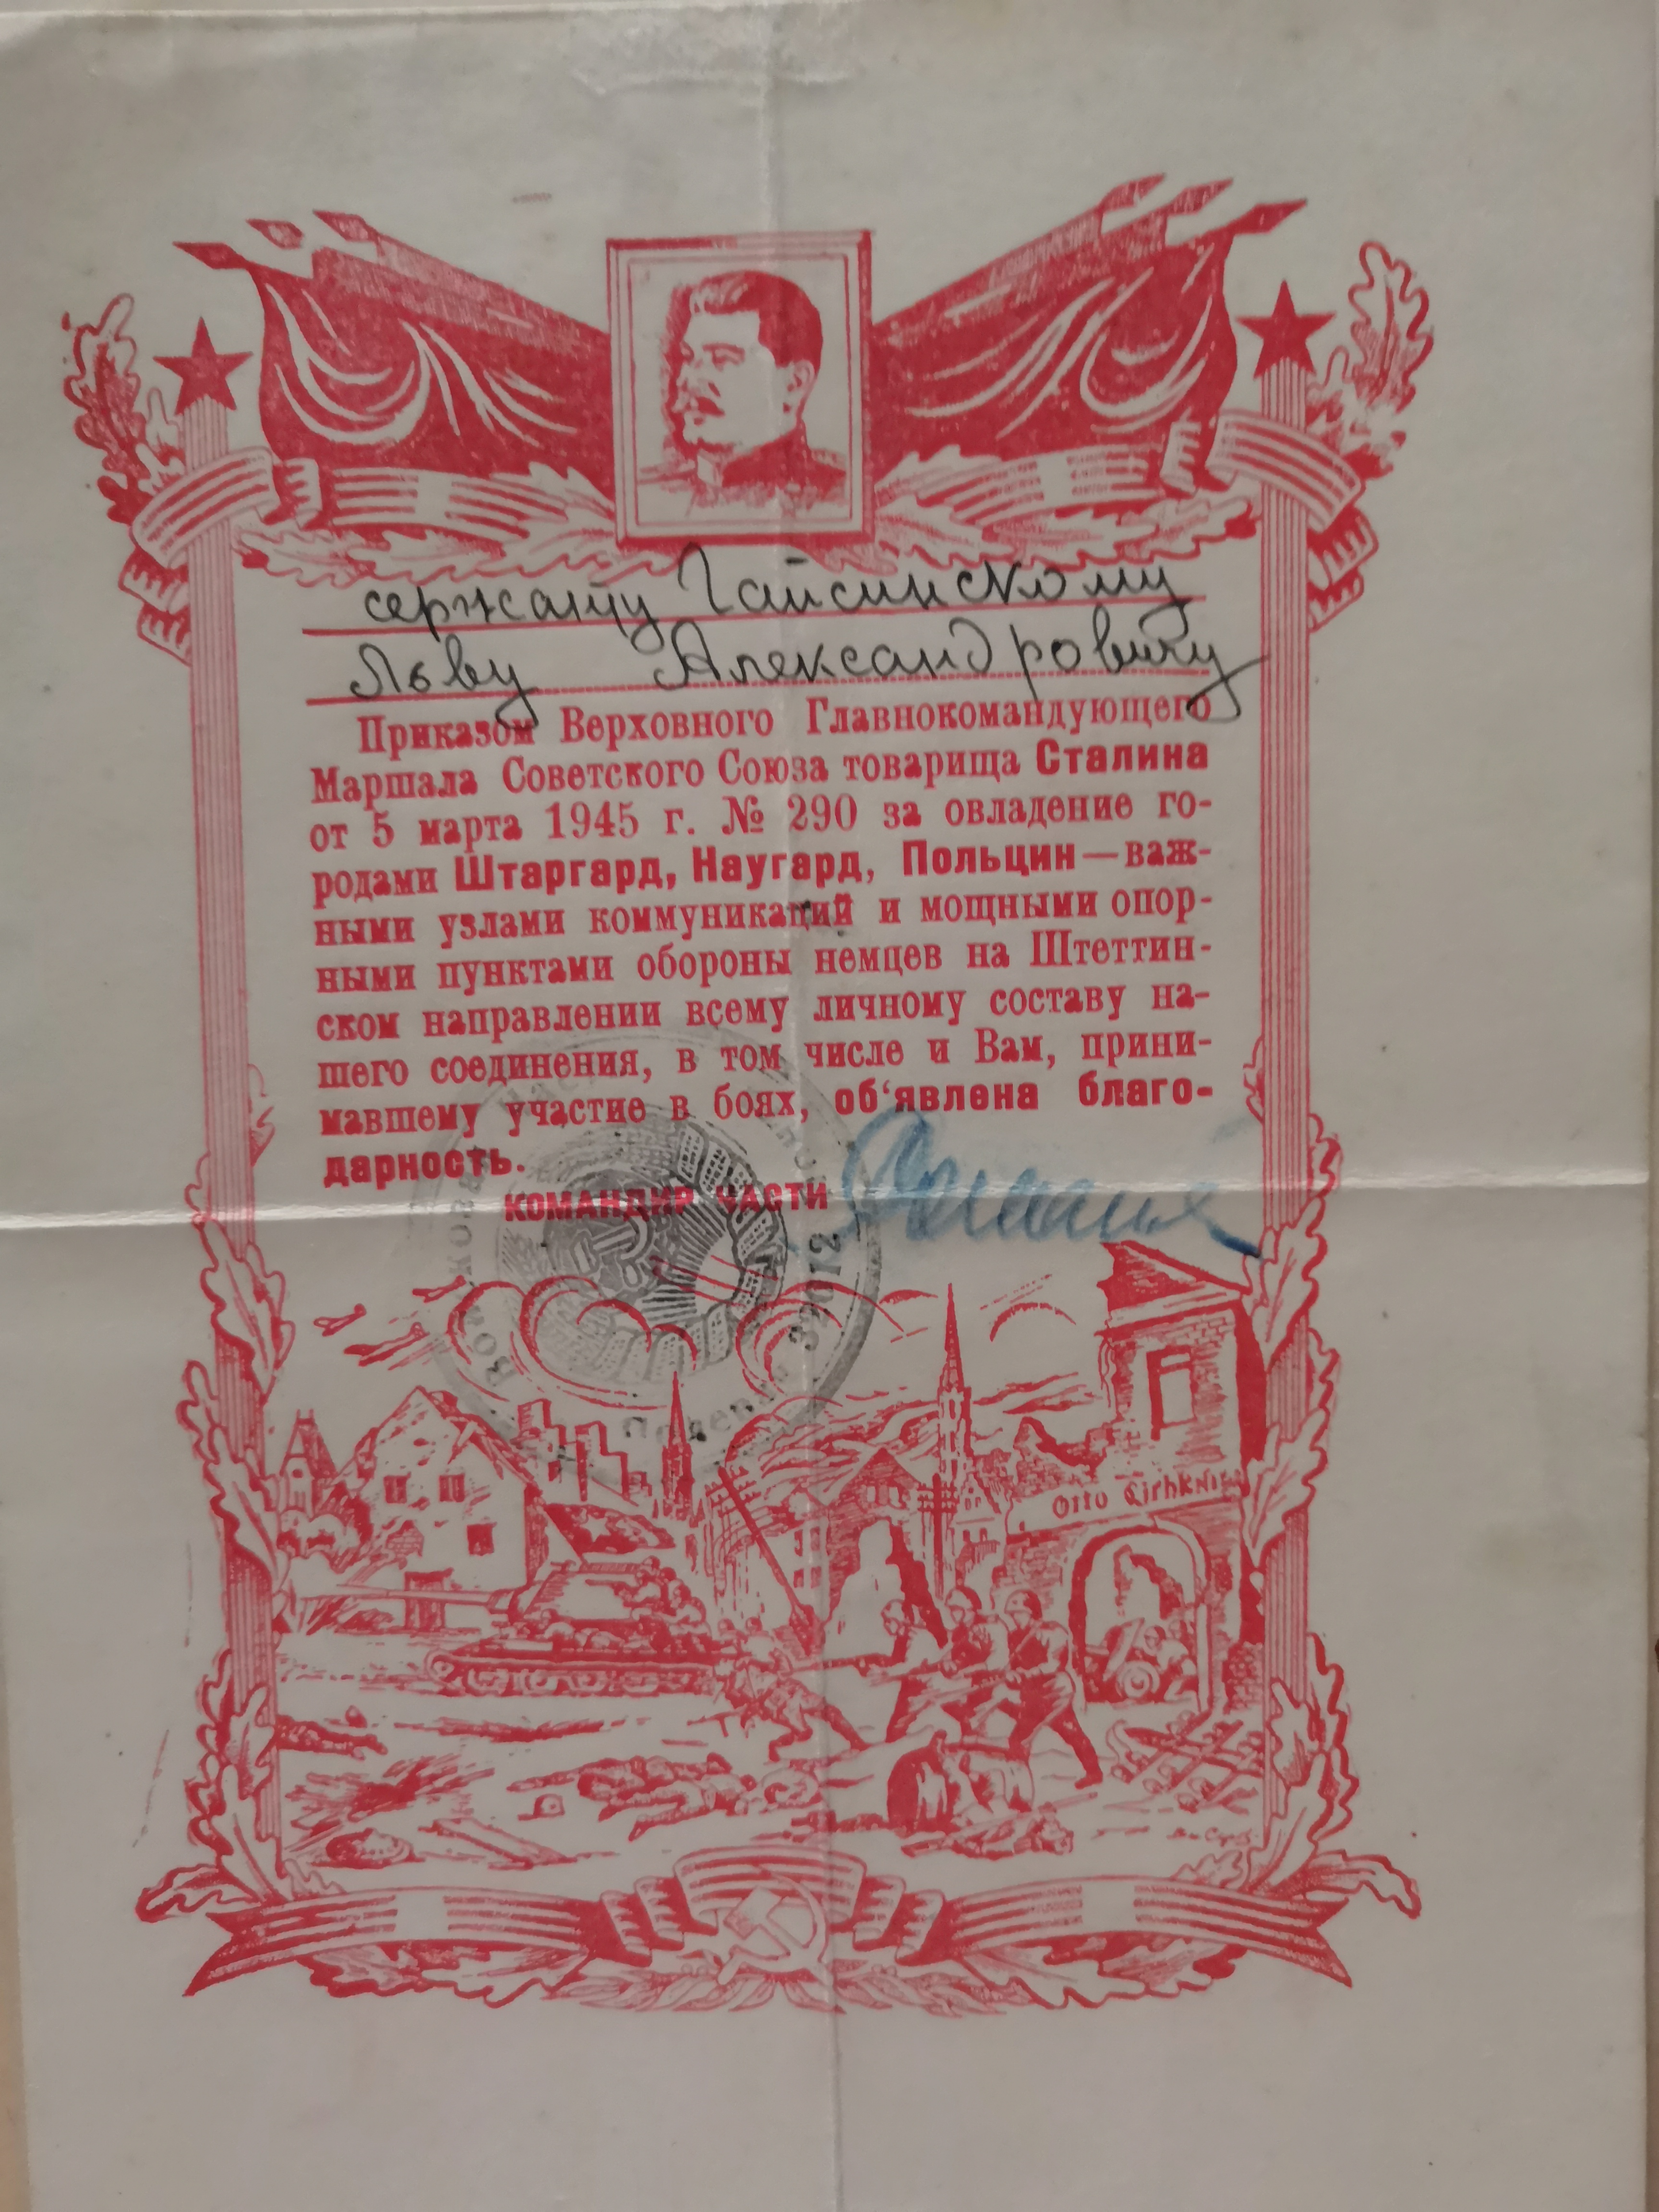 сержанту Гайсинскому
Льву Александровичу
Приказом Верховного Главнокомандующего
Маршала Советского Союза товарища Сталина
от 5 марта 1945 г. № 290 за овладение го-
родами Штаргард, Наугард, Польцин—важ-
ными узлами коммуникаций и мощными опор-
ными пунктами обороны немцев на Штеттин-
ском направлении всему личному составу на-
шего соединения, в том числе и Вам, прини-
мавшему участие в боях, об‘явлена благо-
дарность.
КОМАНДИР ЧАСТИ
32012
Otto